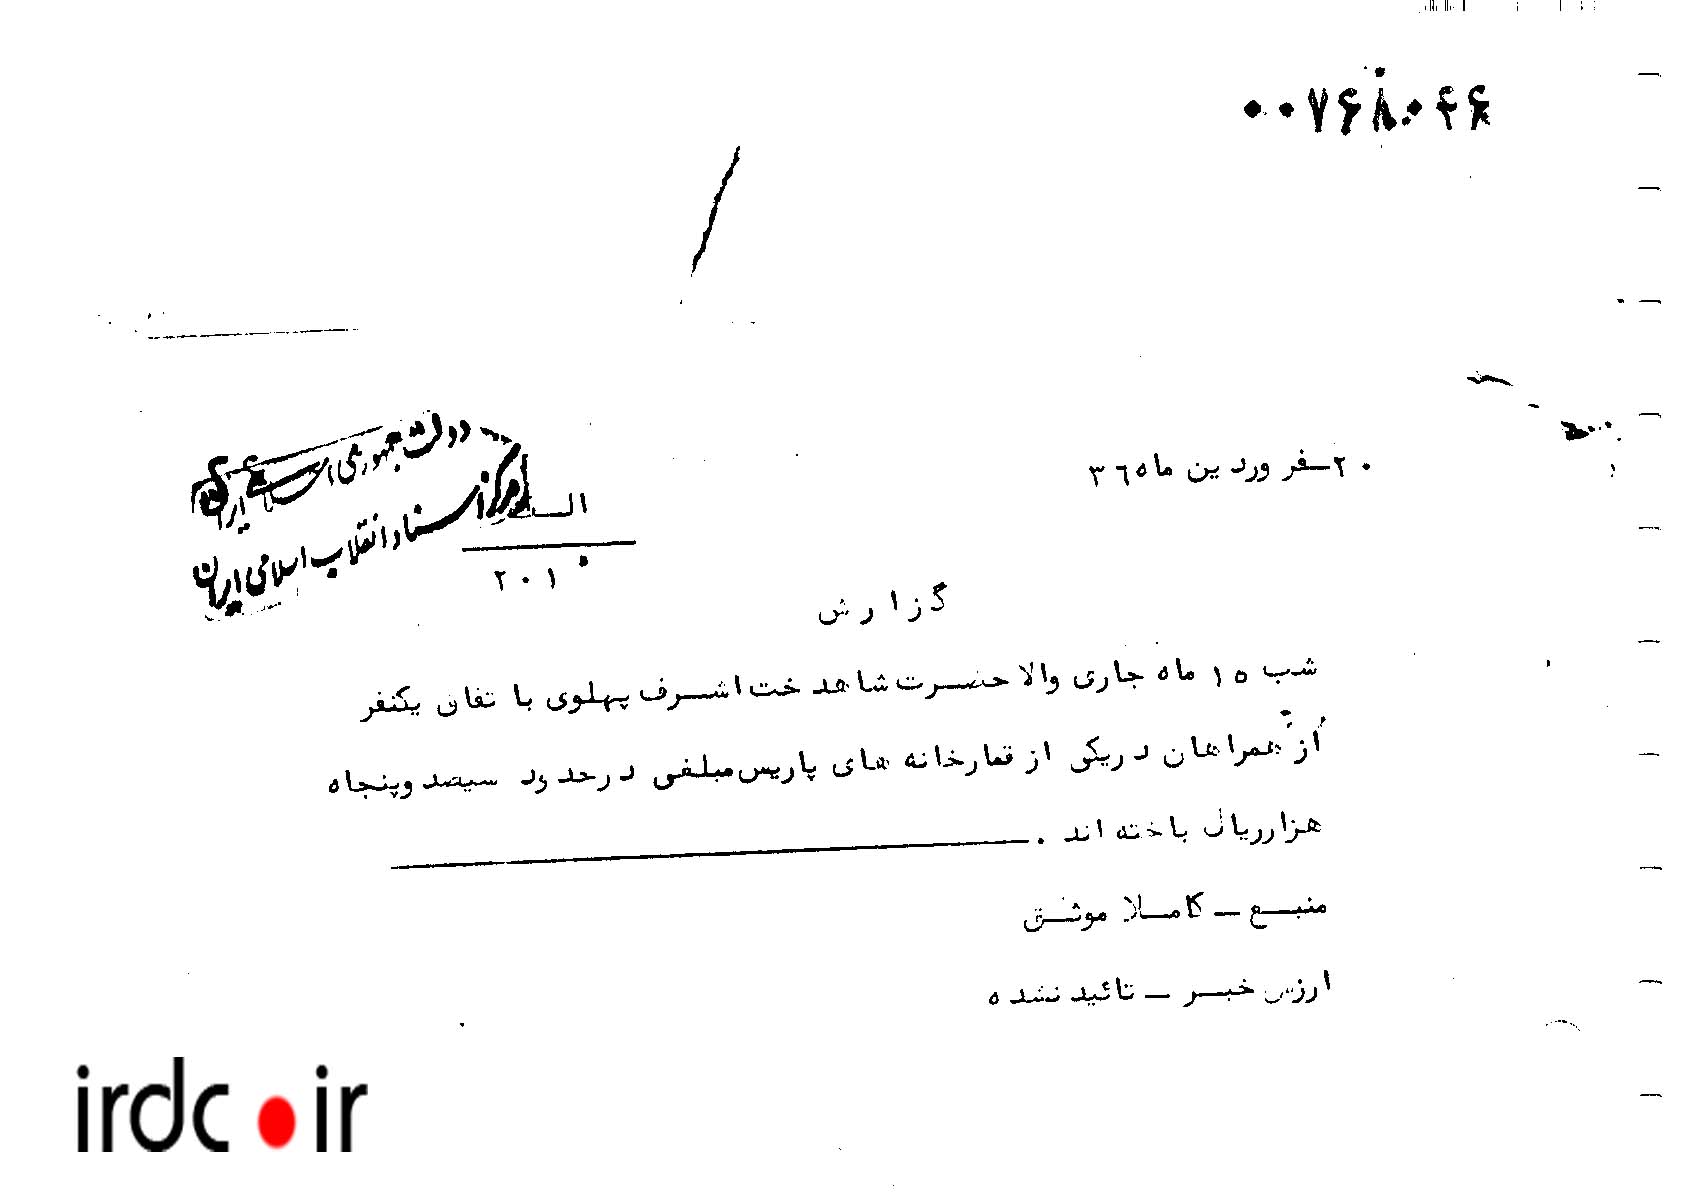 ۰۰۷۶۸۰۴۶
۲۰-فروردین ماه ۳۶
دولت جمهوری اسلامی ایران
مرکز اسناد انقلاب اسلامی ایران
الف
۲۰۱۰
گزارش
شب ۱۵ ماه جاری والاحضرت شاهدخت اشرف پهلوی با تفاق یکنفر
از همراهان دریکی از قمارخانه های پاریس مبلغی درحدود سیصد وپنجاه
هزارریال باخته اند .
منبع - کاملا موثق
ارزش خبر - تائید نشده
irdc.ir